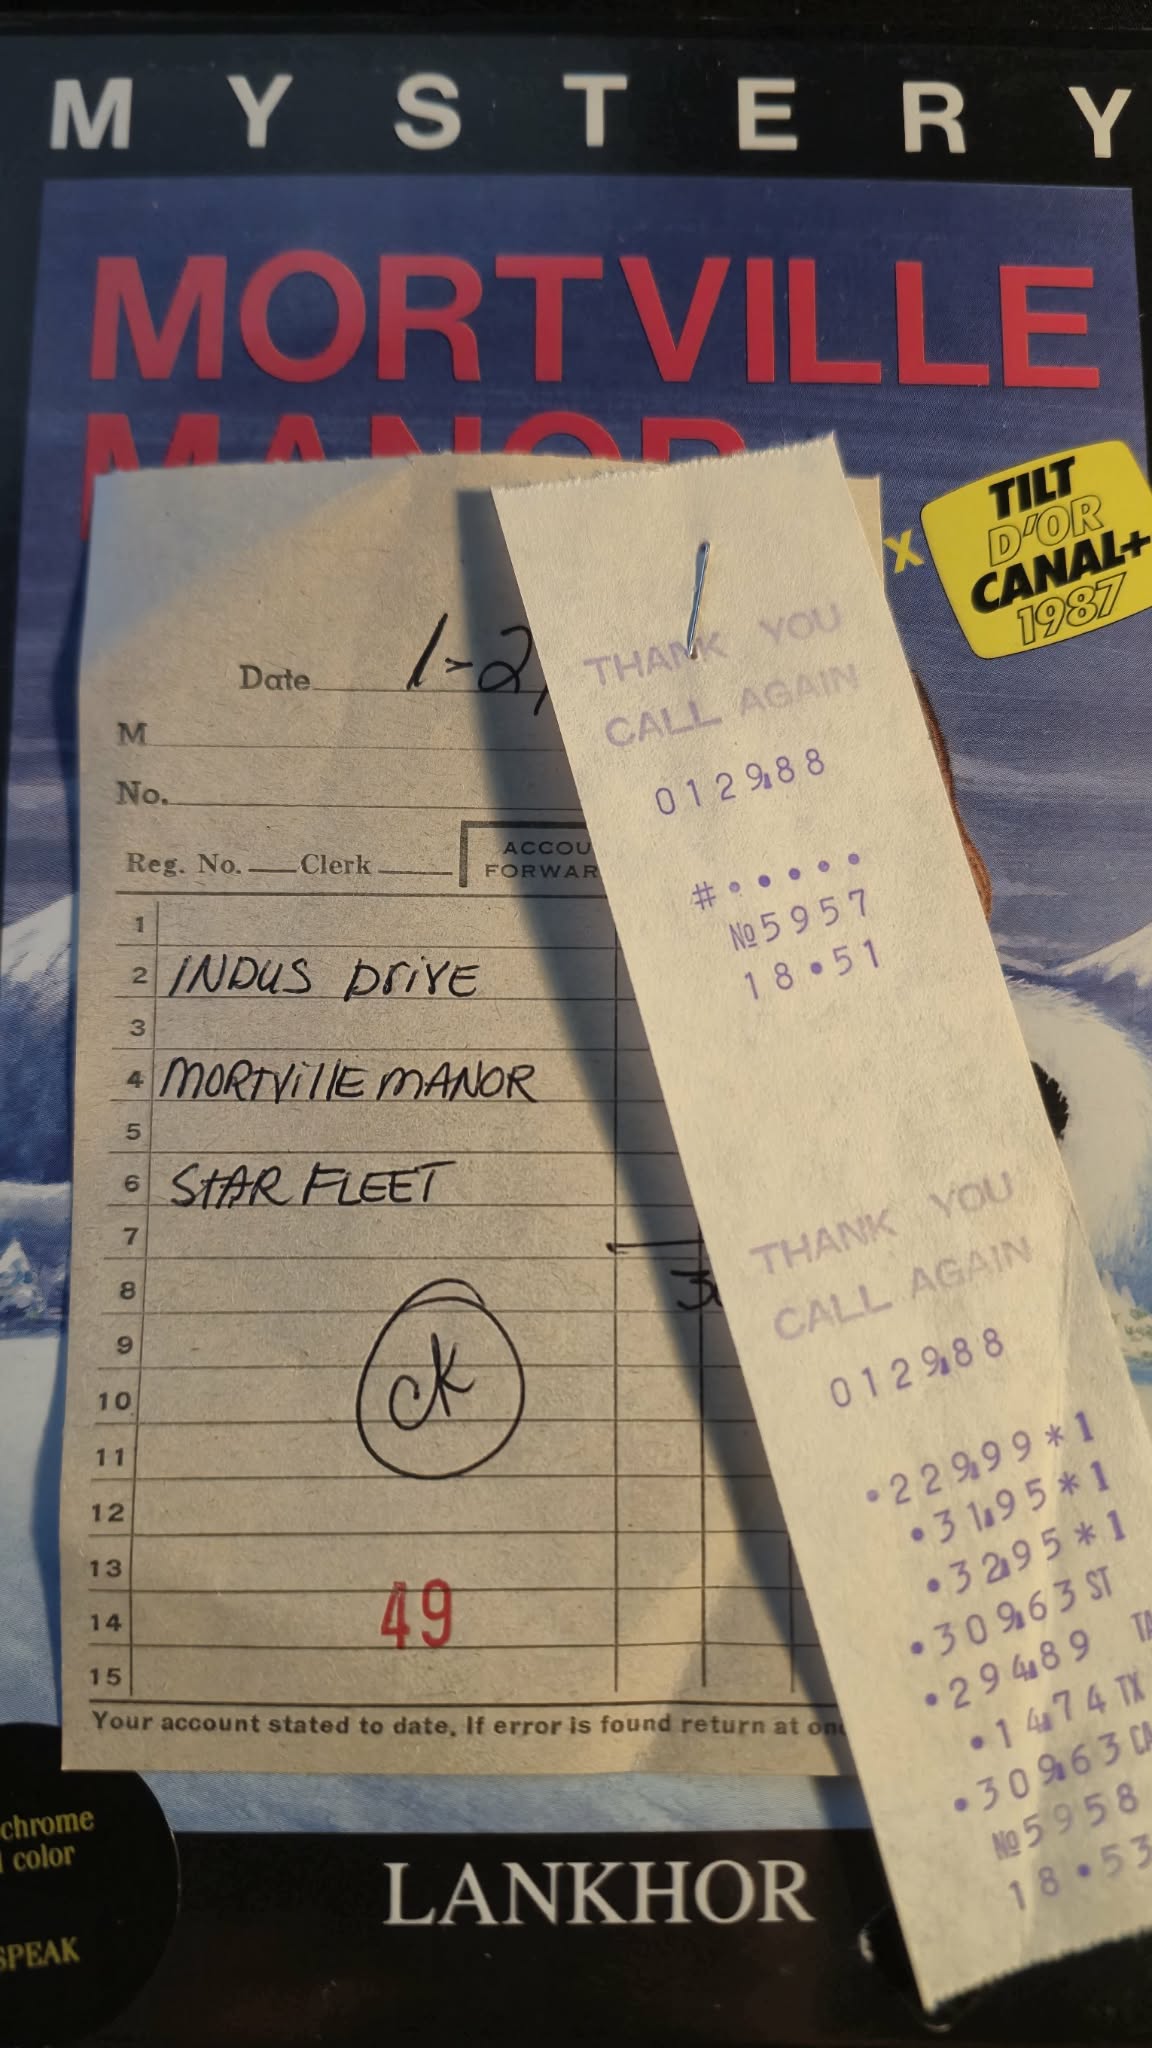 MYSTERY
MORTVILLE
MANOR
X
TILT
D'OR
CANAL+
1987
Date 1-2
M
No.
Reg. No. Clerk
1
2 INDUS DriVE
3
4 MORTVillE MANOR
5
6 STAR FLEET
7
8
9
10
11
12
13
14
15
CK
49
Your account stated to date. If error is found return at
THANK YOU
CALL AGAIN
012988
#•••••
№5957
18•51
THANK YOU
CALL AGAIN
012988
•229.99*1
•31.95*1
•32.95*1
•309.63 ST
•294.89 TA
•14.74 TX
•309.63 CA
№5958
18•53
chrome
color
SPEAK
LANKHOR